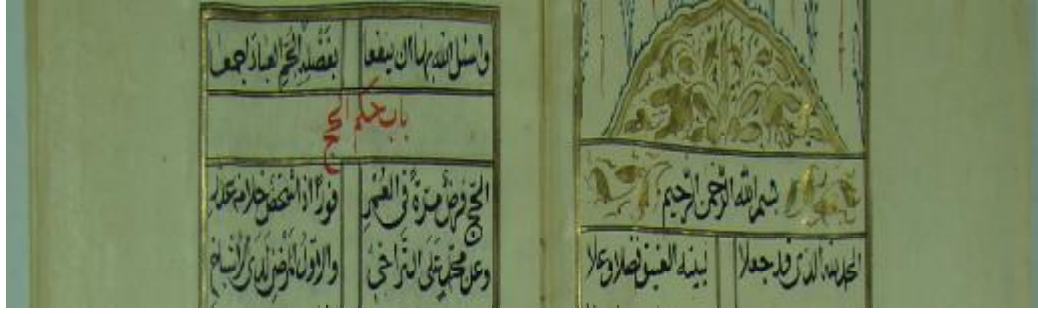 بسم الله الرحمن الرحيم
الحمد لله الذي قد جعلا لبيته العتيق فضلا وعلا
واسئل الله بها ان ينفعا بفضله الجم العباد اجمعا
باب حكم الحج
الحج فرض مرة في العمر فورا اذا الشخص خلا من
وعن محمد على التراخي والاول المرضي لدى الاشياخ